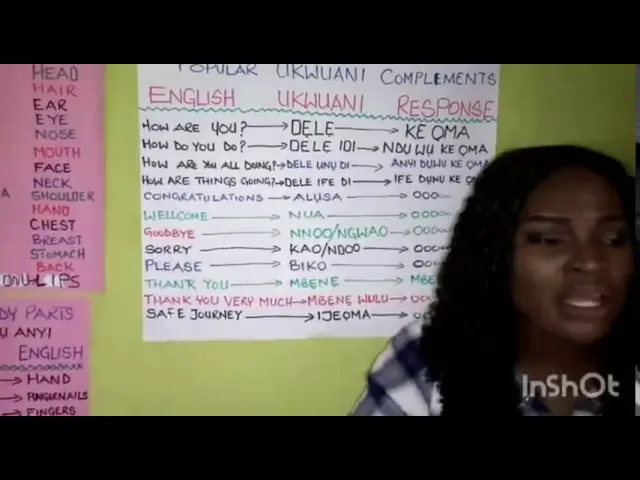 HEAD
HAIR
EAR
EYE
NOSE
MOUTH
FACE
NECK
SHOULDER
HAND
CHEST
BREAST
STOMACH
BACK
LIPS
PARTS
ANYI
ENGLISH
→ HAND
→ FINGERNAILS
→ FINGERS
POPULAR UKWUANI COMPLEMENTS
ENGLISH UKWUANI RESPONSE
HOW ARE YOU? → DELE → KE ỌMA
HOW DO YOU DO? → DELE IDI → NDU WU KE ỌMA
HOW ARE YOU ALL DOING? → DELE UNU DI → ANYI DUWU KE ỌMA
HOW ARE THINGS GOING? → DELE IFE DI → IFE DUWU KE
CONGRATULATIONS → ALUSA →
WELLCOME → NUA →
GOODBYE → NNOO/NGWAO →
SORRY → KAO/NDOO →
PLEASE → BIKO →
THANK YOU → MBENE →
THANK YOU VERY MUCH → MBENE WULU →
SAFE JOURNEY → IJEỌMA →
InShOt